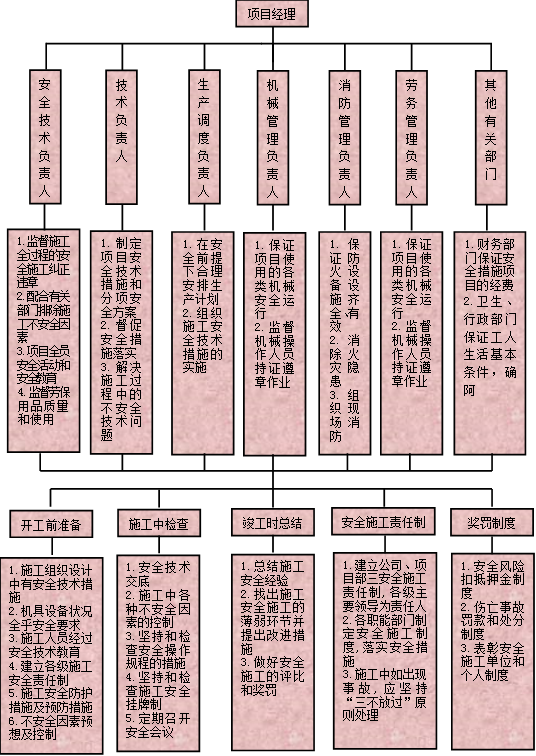 项目经理
安全技术负责人
技术负责人
生产调度负责人
机械管理负责人
消防管理负责人
劳务管理负责人
其他有关部门
1. 监督施工
全过程的安
全施工纠正
违章
2. 配合有关
部门排除施
工不安全因
素
3. 项目全员
安全活动和
安全教育
4. 监督劳保
用品质量
和使用
1. 制定
项目安
全技术
措施和
分项安
全方案
2. 督促
安全措
施落实
3. 解决
施工过
程中的
不安全
技术问
题
1. 在安
全前提
下合理
安排生
产计划
2. 组织
施工安
全技术
措施的
实施
1. 保证
项目使
用的各
类机械
安全运
行
2. 监督
机械操
作人员
持证遵
章作业
1. 保
证防
火设
备设
施齐
全有
效
2. 消
除火
灾隐
患
3. 组
织现
场消
防
1. 保证
项目使
用的各
类机械
安全运
行
2. 监督
机械操
作人员
持证遵
章作业
1. 财务部
门保证安
全措施项
目的经费
2. 卫生、
行政部门
保证工人
生活基本
条件，确
阿
开工前准备
施工中检查
竣工时总结
安全施工责任制
奖罚制度
1. 施工组织设计
中有安全技术措
施
2. 机具设备状况
全乎安全要求
3. 施工人员经过
安全技术教育
4. 建立各级施工
安全责任制
5. 施工安全防护
措施及预防措施
6. 不安全因素预
想及控制
1. 安全技术
交底
2. 施工中各
种不安全因
素的控制
3. 坚持和检
查安全操作
规程的措施
4. 坚持和检
查施工安全
挂牌制
5. 定期召开
安全会议
1. 总结施工
安全经验
2. 找出施工
安全施工的
薄弱环节并
提出改进措
施
3. 做好安全
施工的评比
和奖罚
1. 建立公司、项
目部三安全施工
责任制，各级主
要领导为责任人
2. 各职能部门制
定安全施工制
度，落实安全措
施
3. 施工中如出现
事故，应坚持
“三不放过”原
则处理
1. 安全风险
扣抵押金制
度
2. 伤亡事故
罚款和处分
制度
3. 表彰安全
施工单位和
个人制度